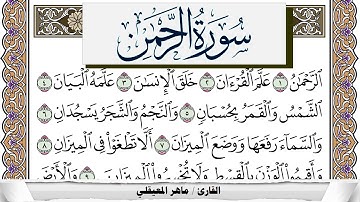 سُورَةُ الرَّحْمَٰن
الرَّحْمَٰنُ ١ عَلَّمَ الْقُرْءَانَ ٢ خَلَقَ الْإِنسَانَ ٣ عَلَّمَهُ الْبَيَانَ ٤
الشَّمْسُ وَالْقَمَرُ بِحُسْبَانٍ ٥ وَالنَّجْمُ وَالشَّجَرُ يَسْجُدَانِ ٦
وَالسَّمَاءَ رَفَعَهَا وَوَضَعَ الْمِيزَانَ ٧ أَلَّا تَطْغَوْا فِي الْمِيزَانِ ٨
وَأَقِيمُوا الْوَزْنَ بِالْقِسْطِ وَلَا تُخْسِرُوا الْمِيزَانَ ٩ وَالْأَرْضَ
القارئ / ماهر المعيقلي